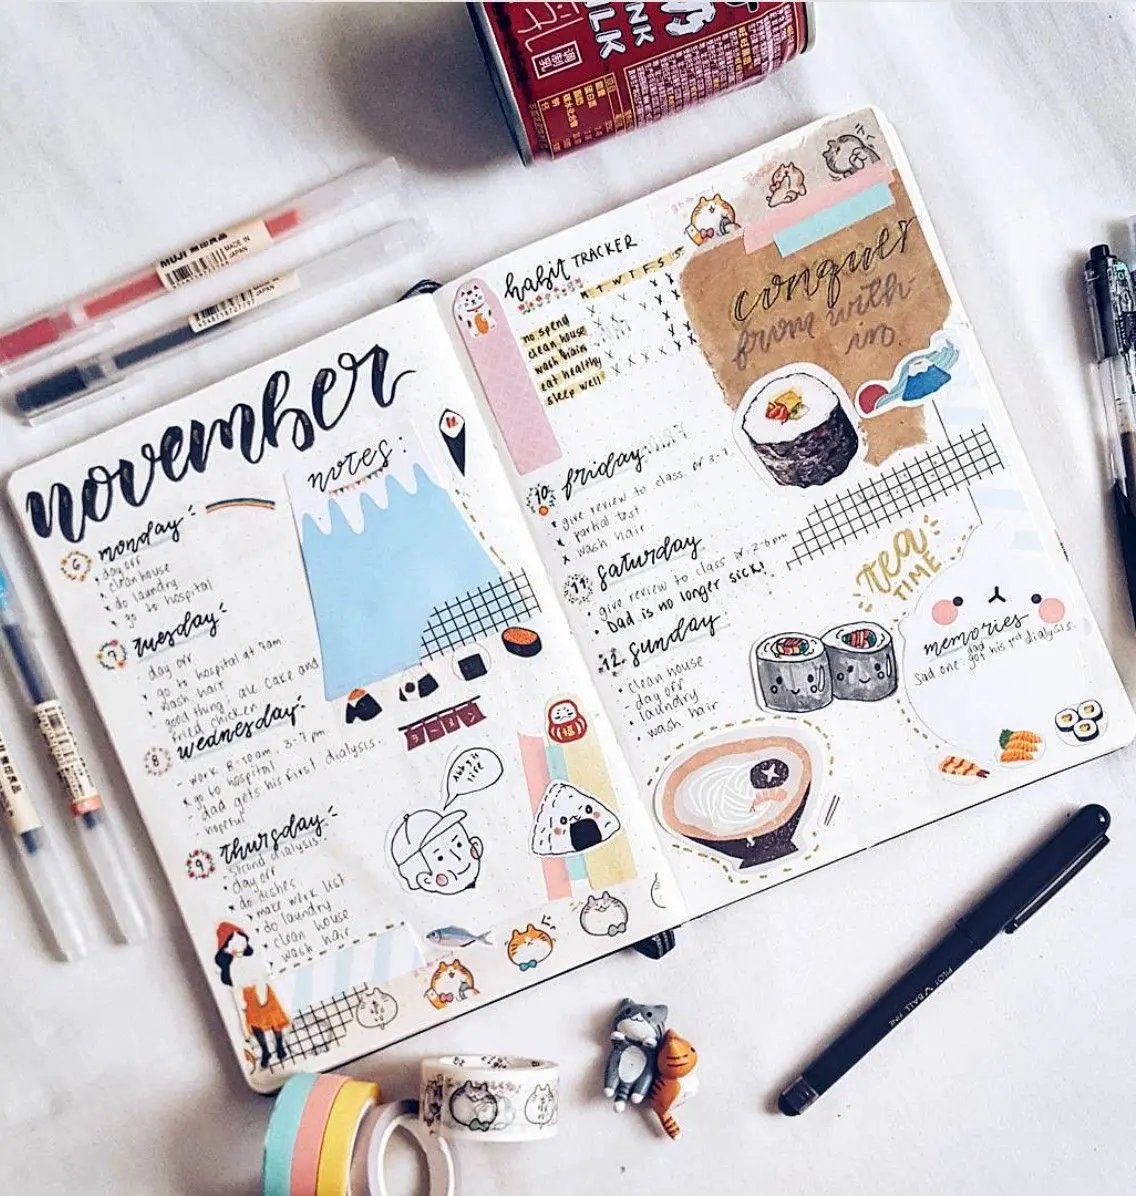 november
notes:
6
monday
day off
clean house
do laundry
go to hospital
7
Tuesday
day off
go to hospital at 7am
wash hair
good thing: ate cake and
fried chicken
8
wednesday
- work 8-10am, 3-7pm
go to hospital
- dad gets his first dialysis.
hopeful
9
thursday
second dialysis
day off
do dishes
make work list
do laundry
clean house
wash hair
ラーメン
life
habit TRACKER
M T W T F S S
no spend
clean house
wash hair
eat healthy
sleep well
conquer
from with
in.
10
friday
x give review to class
x partial test
x wash hair
11
saturday
give review to class
Dad is no longer sick!
12
sunday
clean house
- day off
laundry
wash hair
tea
TIME
memories
Sad one: dad got his 1st dialysis.
MUJI 無印良品
MADE IN
JAPAN
MADE IN
JAPAN
MILK
乳
调制乳
PILOT V BALL FINE